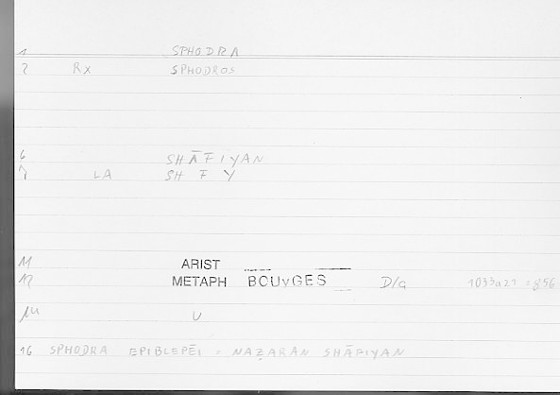 1 SPHODRA
2 RX SPHODROS
6 SHĀFIYAN
LA SH F Y
11 ARIST
12 METAPH BOUYGES D/G 1033a21 = 856
14 U
16 SPHODRA EPIBLEPĒI = NAẒARAN SHĀFIYAN